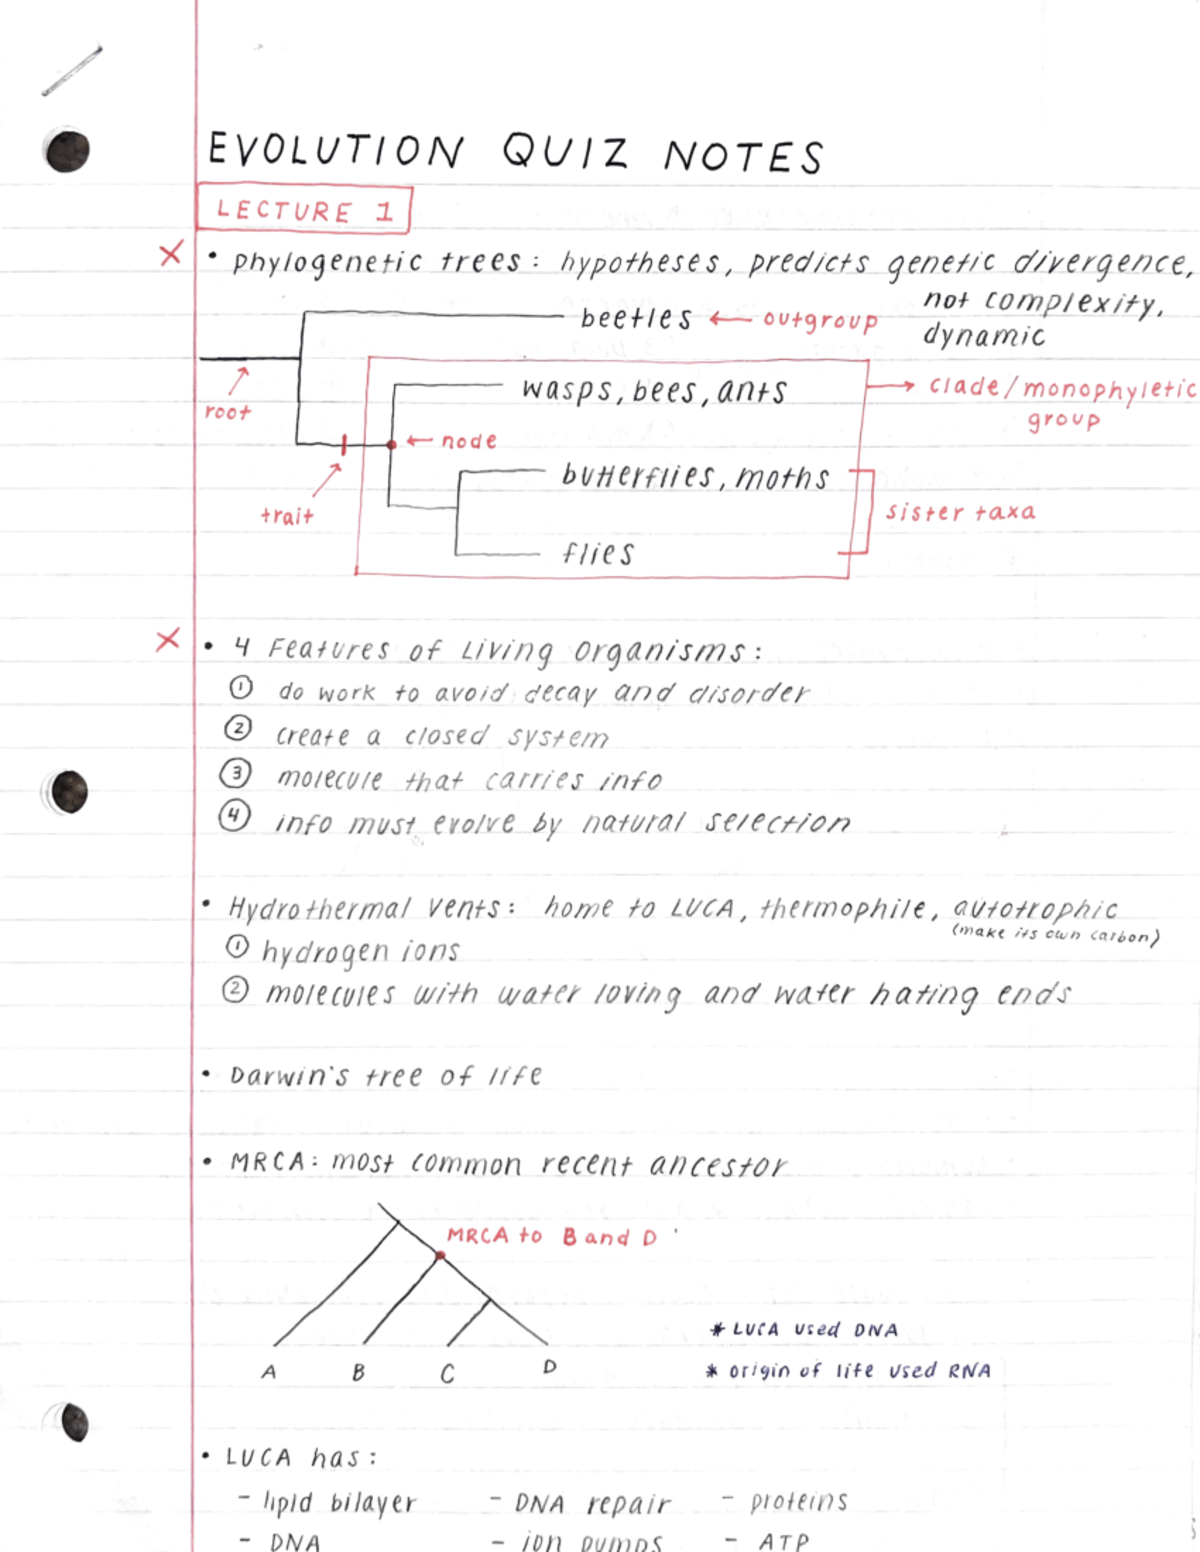 EVOLUTION QUIZ NOTES
LECTURE 1
× • phylogenetic trees: hypotheses, predicts genetic divergence,
not complexity,
dynamic
beetles ← outgroup
root
wasps, bees, ants
→ clade/monophyletic
group
← node
trait
butterflies, moths
sister taxa
flies
× • 4 Features of Living Organisms:
① do work to avoid decay and disorder
② create a closed system
③ molecule that carries info
④ info must evolve by natural selection
• Hydrothermal Vents: home to LUCA, thermophile, autotrophic
(make its own carbon)
① hydrogen ions
② molecules with water loving and water hating ends
• Darwin's tree of life
• MRCA: most common recent ancestor
MRCA to B and D
A B C D
* LUCA used DNA
* origin of life used RNA
• LUCA has:
- lipid bilayer - DNA repair - proteins
- DNA - ion pumps - ATP